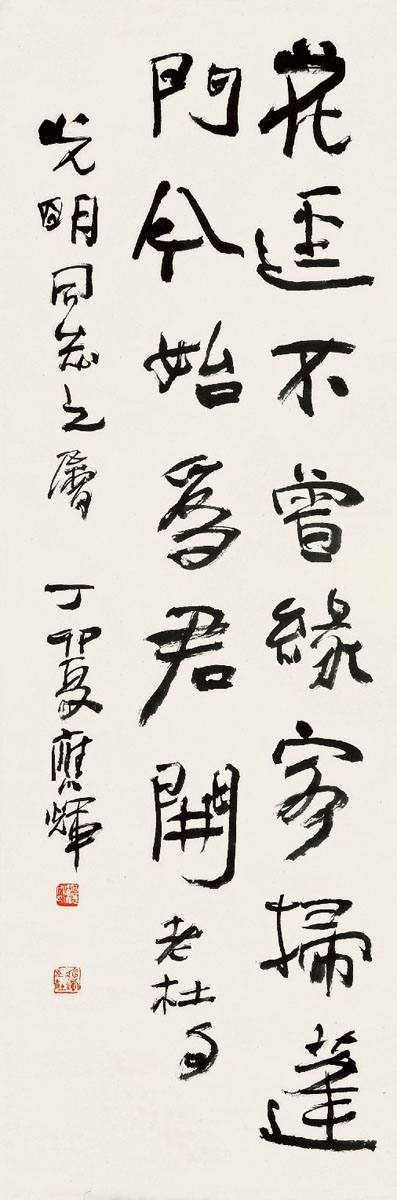 花逕不曾緣客掃蓬
門今始為君開老杜句
光明同志之屬 丁卯夏應輝